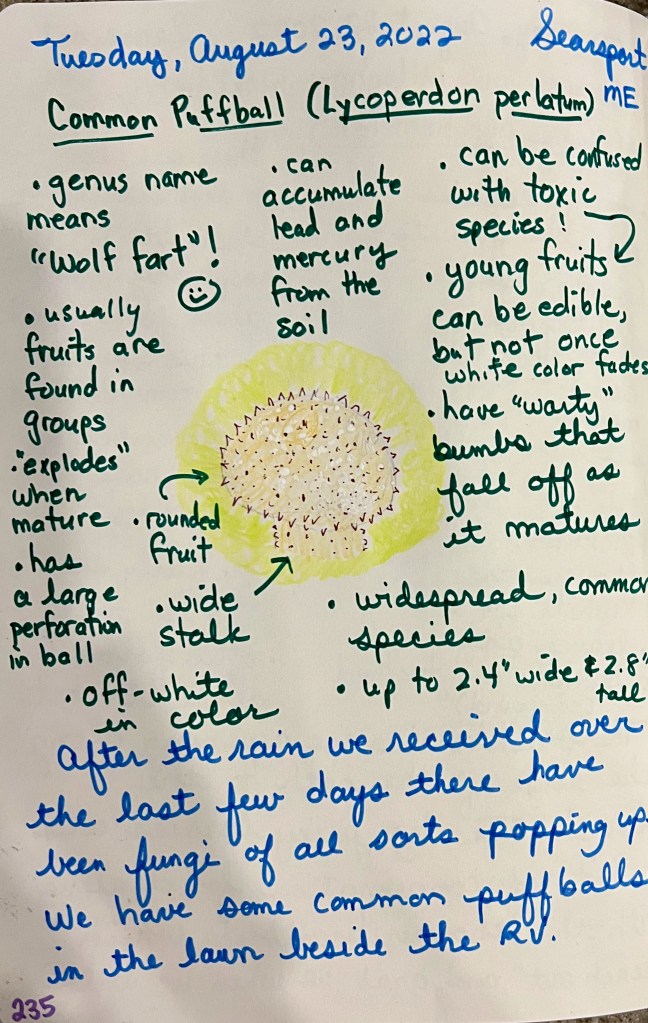 Tuesday, August 23, 2022
Searsport
ME
Common Puffball (Lycoperdon perlatum)
• genus name
means
"Wolf fart"!
• usually
fruits are
found in
groups
• "explodes"
when
mature
• has
a large
perforation
in ball
• can
accumulate
lead and
mercury
from the
soil
• can be confused
with toxic
species!
• young fruits
can be edible,
but not once
white color fades
• have "warty"
bumbs that
fall off as
it matures
• rounded
fruit
• wide
stalk
• off-white
in color
• widespread, common
species
• up to 2.4" wide & 2.8"
tall
After the rain we received over
the last few days there have
been fungi of all sorts popping up.
We have some common puffballs
in the lawn beside the RV.
235